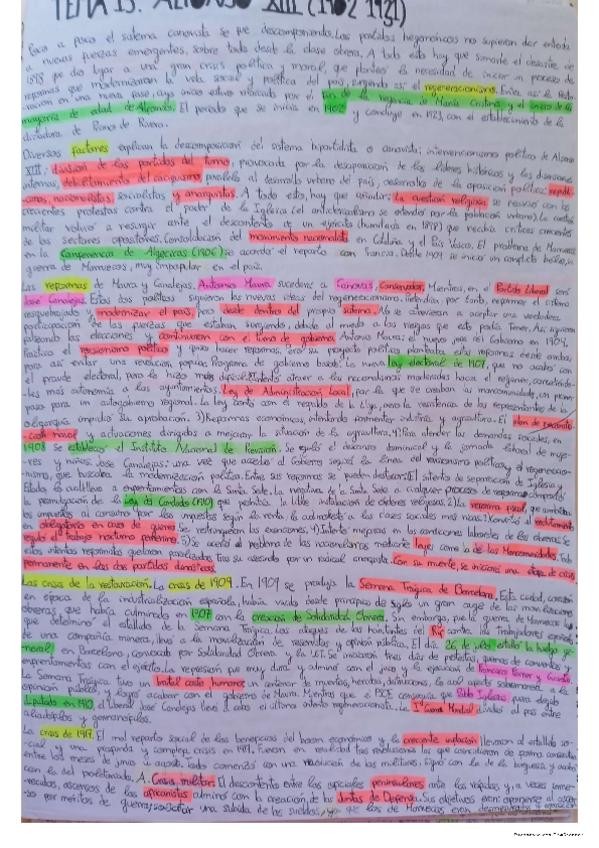 TEMA 13: ALFONSO XIII (1902-1931)
Poco a poco el sistema canovista se fue descomponiendo. Los partidos hegemónicos no supieron dar entrada
a nuevas fuerzas emergentes, sobre todo desde la clase obrera. A todo esto hay que sumarle el desastre de
1898 que dio lugar a una gran crisis política y moral, que planteó la necesidad de iniciar un proceso de
reformas que modernizaran la vida social y política del país, surgiendo así el regeneracionismo. Entra así la Restau-
ración en una nueva fase, cuyo inicio estuvo marcado por el fin de la regencia de María Cristina y el inicio de la
mayoría de edad de Alfonso. El periodo que se inicia en 1902 y concluye en 1923, con el establecimiento de la
dictadura de Primo de Rivera.
Diversos factores explican la descomposición del sistema bipartidista o canovista: intervencionismo político de Alfonso
XIII; división de los partidos del turno, provocada por la desaparición de los líderes históricos y las disensiones
internas, debilitamiento del caciquismo, paralelo al desarrollo urbano del país, desarrollo de la oposición política: repúbli-
canos, nacionalistas, socialistas y anarquistas. A todo esto, hay que añadir: La cuestión religiosa se reavivó con las
crecientes protestas contra el poder de la Iglesia (el anticlericalismo se extendió por la población urbana). La cuestión
militar volvió a resurgir ante el descontento de un ejército (humillado en 1898) que recibía críticas crecientes
de los sectores opositores. Consolidación del movimiento nacionalista en Cataluña y el País Vasco. El problema de Marruecos
en la Conferencia de Algeciras (1906) se acordó el reparto con Francia. Desde 1909 se inició un conflicto bélico, la
guerra de Marruecos, muy impopular en el país.
Las reformas de Maura y Canalejas. Antonio Maura sucederá a Cánovas, Conservador. Mientras, en el Partido Liberal será
José Canalejas. Estos dos políticos siguieron las nuevas ideas del regeneracionismo. Defendían, por tanto, reformar el sistema
resquebrajado y modernizar el país, pero desde dentro del propio sistema. No se atrevieron a aceptar una verdadera
participación de las fuerzas que estaban surgiendo, debido al miedo a los riesgos que esto podía tener. Así siguieron
falseando las elecciones y continuaron con el turno de gobierno. Antonio Maura: el nuevo jefe del Gobierno en 1904.
Practicó el revisionismo político y quiso hacer reformas,
para así evitar una revolución popular. Programa de gobierno basado: La nueva ley electoral de 1907, que no acabó con
el fraude electoral, pero lo hizo más difícil
más autonomía a los ayuntamientos. Ley de Administración Local, por la que se creaban las mancomunidades, un primer
paso para un autogobierno regional. La ley contó con el respaldo de la Lliga, pero la resistencia de los representantes de la
oligarquía impidió su aprobación. 3) Reformas económicas, intentando fomentar industria y agricultura. El plan de reconstru-
cción naval y actuaciones dirigidas a mejorar la situación de la agricultura. 4) Para atender las demandas sociales, en
1908 se estableció el Instituto Nacional de Previsión. Se reguló el descanso dominical y la jornada laboral de muje-
res y niños. José Canalejas: una vez que accedió al Gobierno siguió la línea al revisionismo político y el regeneracio-
nismo, que buscaba la modernización política. Entre sus reformas se pueden destacar: El intento de separación de Iglesia y
Estado
la promulgación de la Ley del Candado (1910) que prohibía la libre instalación de órdenes religiosas. 2) La reforma fiscal, que sustituía
los impuestos al consumo por otros impuestos según la renta
en obligatorio en caso de guerra. Se restringieron las exenciones. 4) Intentó mejoras en las condiciones laborales de los obreros. Se
reguló el trabajo nocturno femenino. 5) Se acercó al problema de los nacionalismos mediante leyes como la de las Mancomunidades. Todos
estos intentos reformistas quedaron paralizados tras su asesinato por un radical anarquista. Con su muerte, se iniciará una etapa de crisis
permanente en los dos partidos dinásticos.
Las crisis de la restauración. La crisis de 1909. En 1909 se produjo la Semana Trágica de Barcelona. Esta ciudad, corazón
en época de la industrialización española, había vivido desde principios de siglo un gran auge de las movilizaciones
obreras, que había culminado en 1907 con la creación de Solidaridad Obrera. Sin embargo, fue la guerra de Marruecos la
que determinó el estallido de la Semana Trágica. Los ataques de los habitantes del Rif contra los trabajadores españoles
de una compañía minera, llevó a la movilización de reservistas y opinión pública. El día 26 de julio estalló la huelga ge-
neral en Barcelona, convocada por Solidaridad Obrera y la UGT. Se iniciaron tres días de protestas, quemas de conventos y
enfrentamientos con el ejército. La represión fue muy dura y culminó con el juicio y la ejecución Francisco Ferrer y Guardia.
La Semana Trágica tuvo un brutal coste humano, un centenar de muertos, heridos, detenciones,
opinión pública, y logró acabar con el gobierno de Maura. Mientras que el PSOE consiguió que Pablo Iglesias fuera elegido
diputado en 1910, el liberal José Canalejas llevó a cabo el último intento regeneracionista. La 1ª Guerra Mundial dividió al país entre
aliadófilos y germanófilos.
La crisis de 1917. El mal reparto social de los beneficios del boom económico y la creciente inflación llevaron al estallido so-
cial y una profunda y compleja crisis en 1917. Fueron en realidad tres revoluciones las que coincidieron de forma consecutiva
entre los meses de junio y agosto. Todo comenzó con una revolución de los militares, siguió con la de la burguesía y acabó
con la del proletariado. A. Crisis militar: El descontento entre los oficiales peninsulares ante los rápidos y, a veces inme-
recidos, ascensos de los africanistas culminó con la creación de las Juntas de Defensa. Sus objetivos eran: oponerse al ascen-
so por méritos de guerra; solicitar una subida de los sueldos,